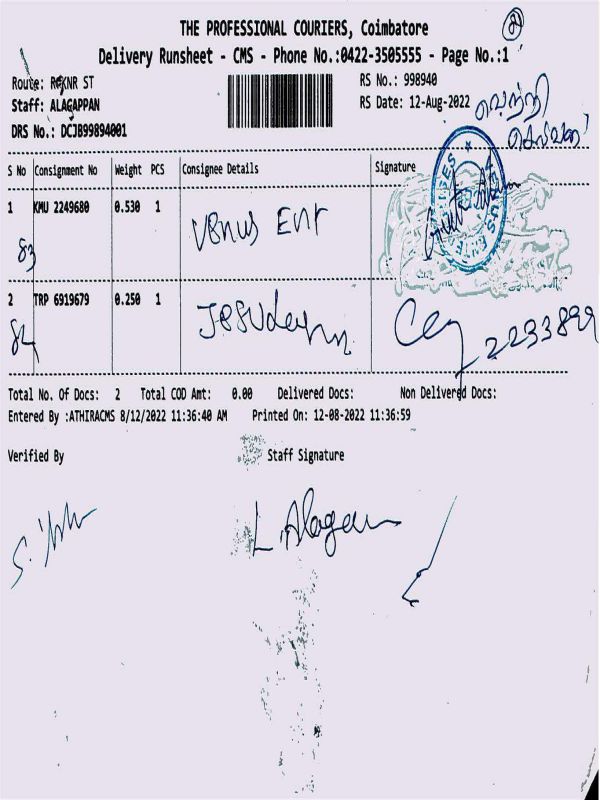 THE PROFESSIONAL COURIERS, Coimbatore
Delivery Runsheet - CMS - Phone No.:0422-3505555 - Page No.:1
Route: NR ST
RS No.: 998940
Staff: ALAGAPPAN
RS Date: 12-Aug-2022
DRS No.: DCJB99894001
வெற்றி
S No Consignment No Weight PCS Consignee Details Signature
1 KMU 2249680 0.530 1 Venus Ent
83
2 TRP 6919679 0.250 1
84
2293899
Total No. Of Docs: 2 Total COD Amt: 0.00 Delivered Docs: Non Delivered Docs:
Entered By :ATHIRACMS 8/12/2022 11:36:40 AM Printed On: 12-08-2022 11:36:59
Verified By Staff Signature